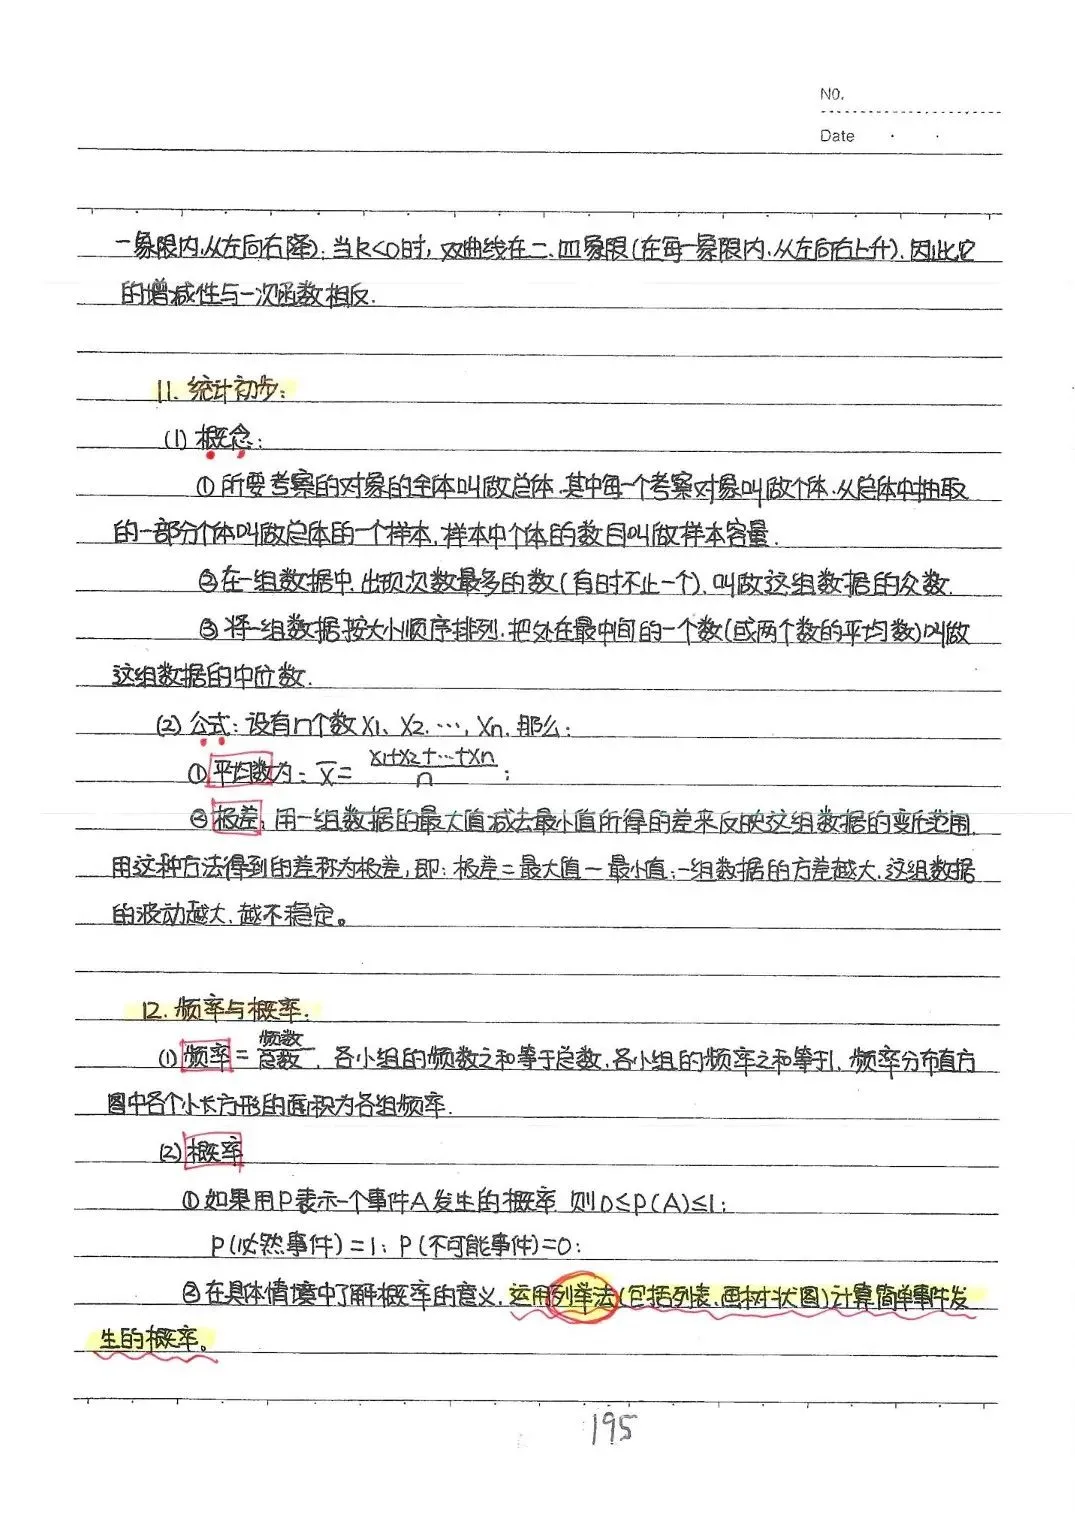 NO.
Date
一象限内,从左向右降);当k<0时,双曲线在二、四象限(在每一象限内,从左向右上升).因此它
的增减性与一次函数相反.
11. 统计初步:
(1) 概念:
①所要考察的对象的全体叫做总体,其中每一个考察对象叫做个体.从总体中抽取
的一部分个体叫做总体的一个样本,样本中个体的数目叫做样本容量.
②在一组数据中,出现次数最多的数(有时不止一个),叫做这组数据的众数.
③将一组数据按大小顺序排列,把处在最中间的一个数(或两个数的平均数)叫做
这组数据的中位数.
(2) 公式:设有n个数x1、x2.…, xn,那么:
①平均数为: x̄ = (x1+x2+…+xn)/n ;
②极差:用一组数据的最大值减去最小值所得的差来反映这组数据的变化范围,
用这种方法得到的差称为极差,即:极差=最大值-最小值;一组数据的方差越大,这组数据
的波动越大,越不稳定。
12. 频率与概率.
(1) 频率= 频数/总数 , 各小组的频数之和等于总数,各小组的频率之和等于1, 频率分布直方
图中各个小长方形的面积为各组频率.
(2) 概率
①如果用P表示一个事件A发生的概率,则0≤P(A)≤1;
P(必然事件)=1; P(不可能事件)=0;
②在具体情境中了解概率的意义,运用列举法(包括列表、画树状图)计算简单事件发
生的概率。
195